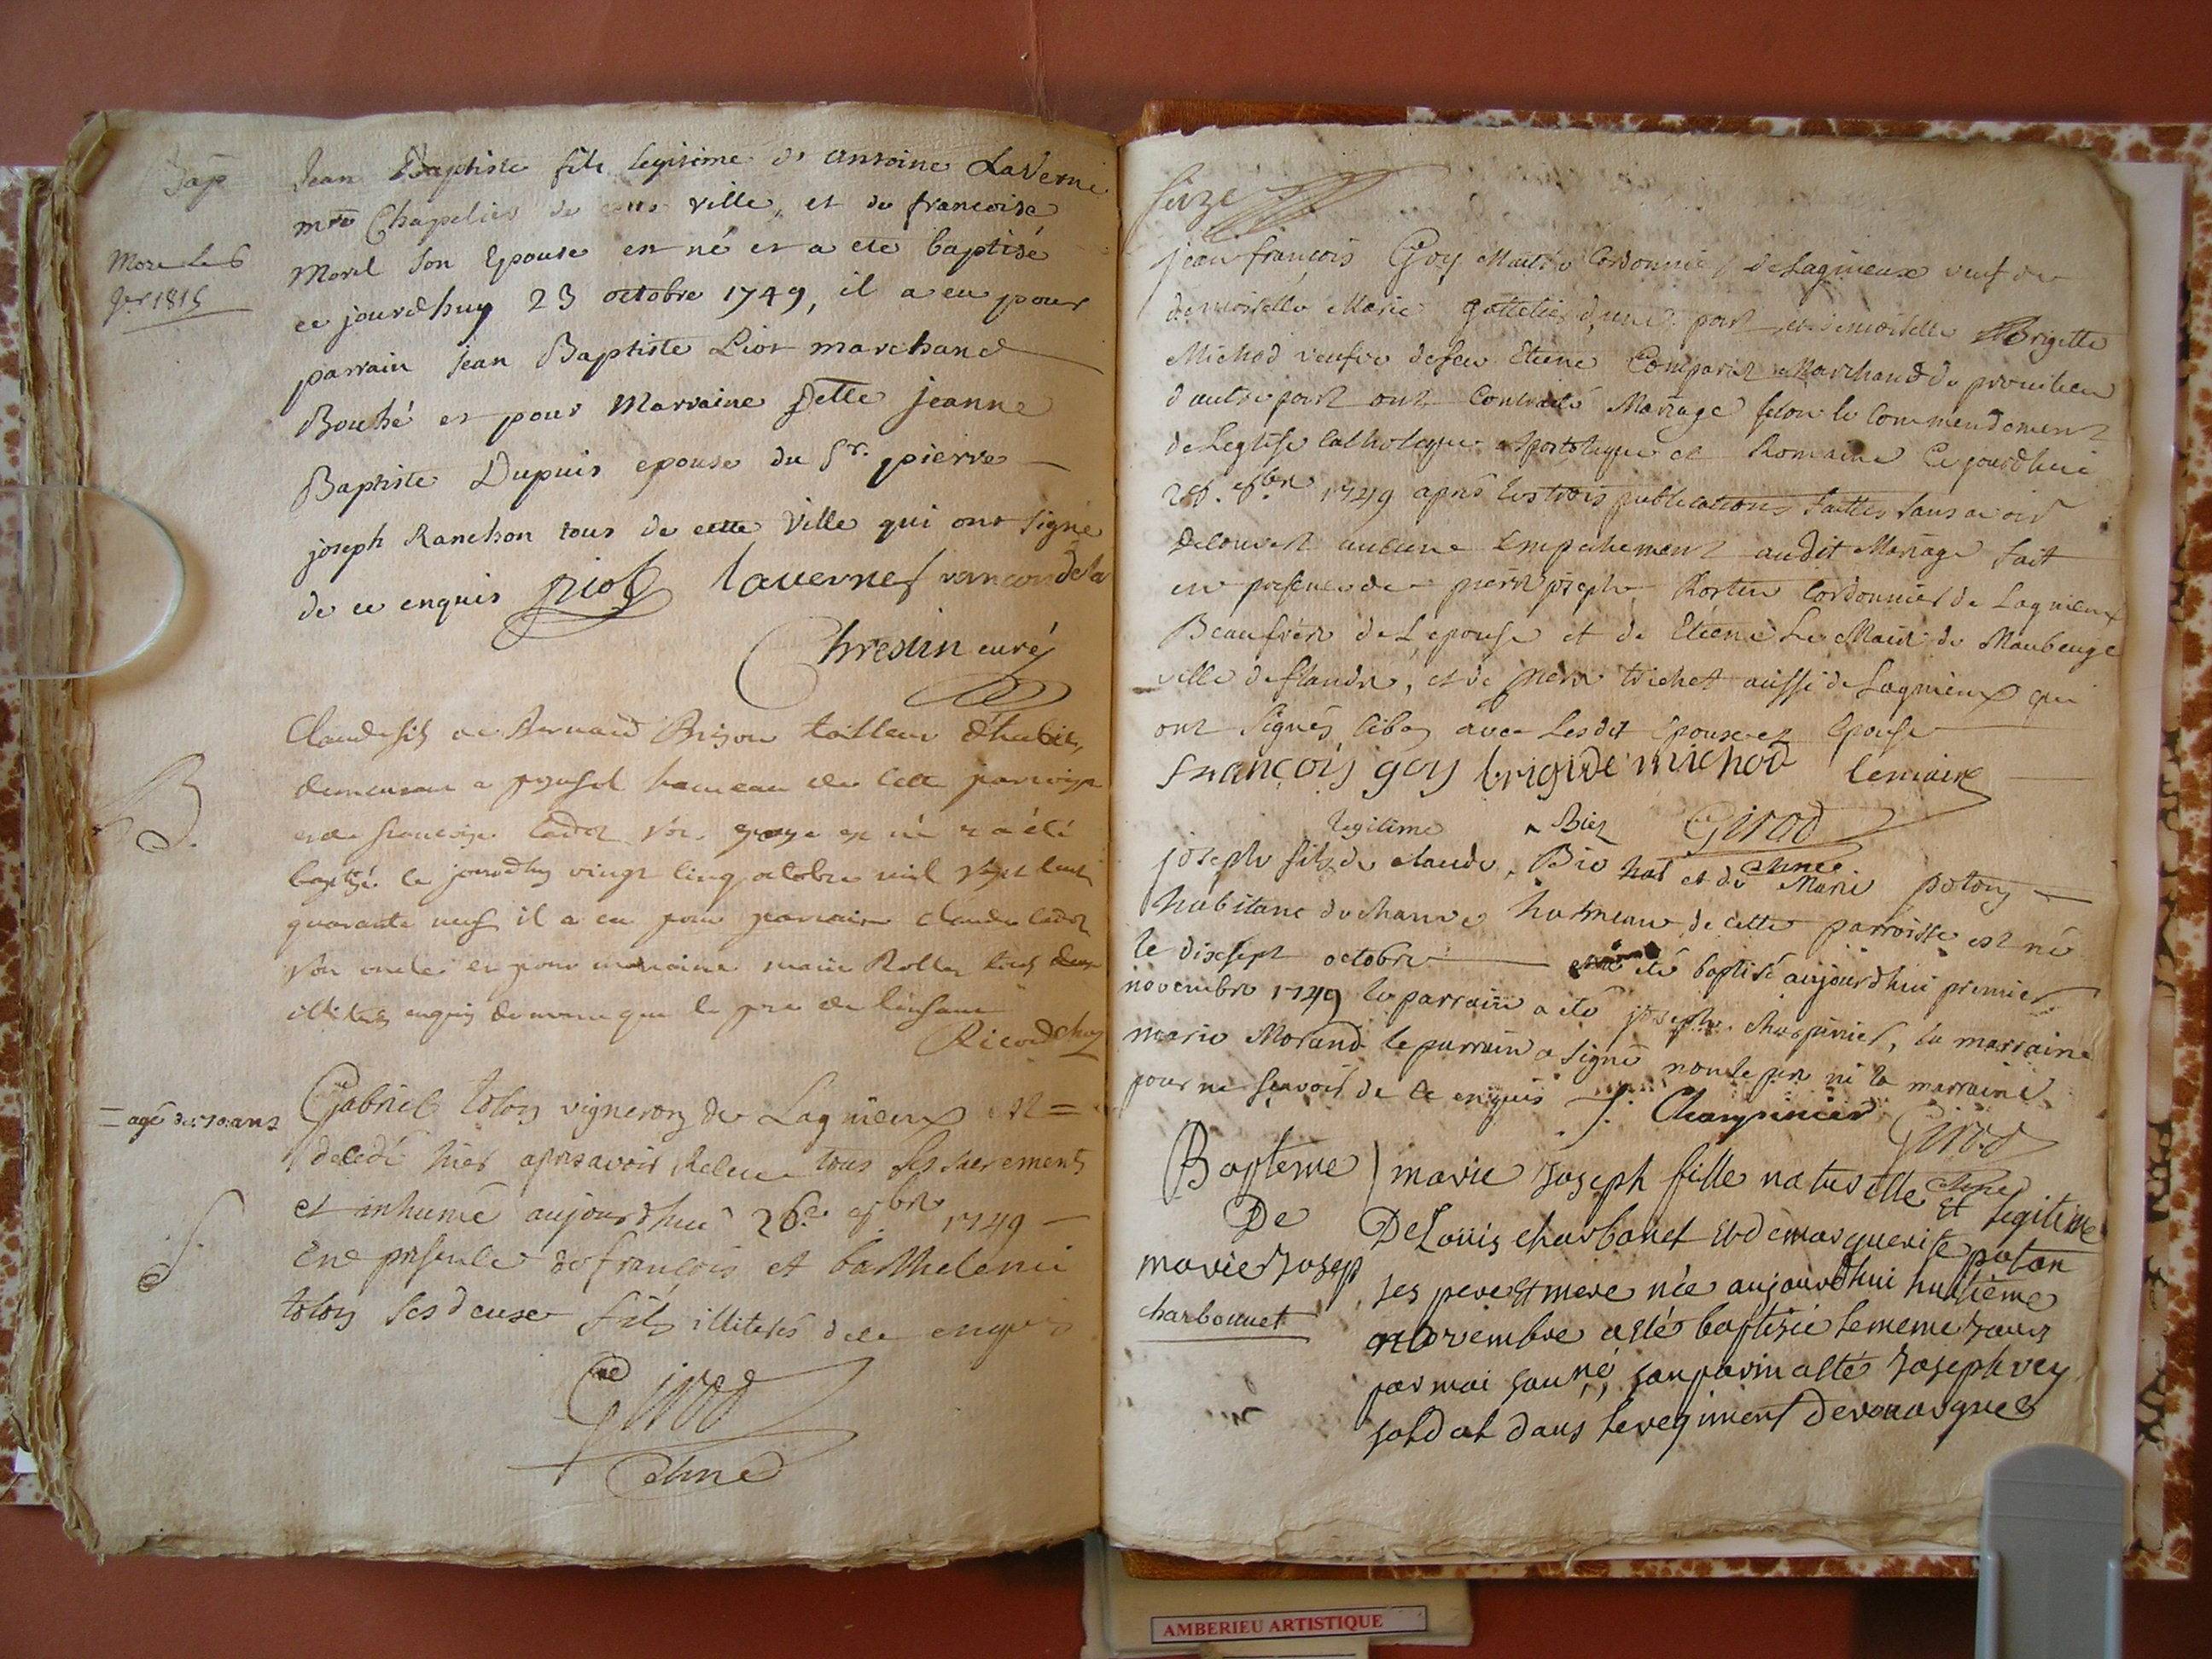 Bap
Jean Baptiste fils legitime d'antoine Laverne
mtre Chapelier de cette ville, et de francoise
Mort le 6
Morel son Epouse est né et a eté baptisé
1815
ce jourdhuy 23 octobre 1749, il a eu pour
parrain jean Baptiste Liot marchand
Bouché et pour Marraine Delle jeanne
Baptiste Dupuis epouse du Sr. pierre
joseph Ranchon tous de cette Ville qui ont signé
de ce enquis laverne
Chresin curé
B.
Claude fils de Bernard Brison tailleur d'habits,
demeurant a hameau de cette parroisse
et de francoise est né et a été
baptisé ce jourdhuy vingt cinq octobre mil sept cent
quarante neuf il a eu pour parrain claude
son oncle et pour marraine marie Rollet tous deux
illiterés enquis de meme que le pere de l'enfant
=agé de 70 ans
Gabriel tolon vigneron de Lagnieux est =
decedé hier apres avoir Receu tous ses sacrements
S.
et inhumé aujourdhui 26e 8bre 1749
en presence de françois et barthelemi
tolon ses deux fils illiterés de ce enquis
Girod
seize
jean françois Goy Maitre Cordonnier de Lagnieux veuf de
demoiselle Marie d'une part et demoiselle Brigitte
Michod veufve de feu Etiene Comparet Marchand de
d'autre part ont Contracté Mariage selon le Commendement
de Leglise Catholique apostolique et Romaine Cejourdhui
28. 8bre 1749 après les trois publications faittes sans avoir
decouvert aucune Empechement audit Mariage fait
en presence de pierre joseph Rostin Cordonnier de Lagnieux
Beaufrère de L'epouse et de Etiene Le Maire de Maubeuge
ville de flandre, et de pierre trichet aussi de Lagnieux qui
ont signés avec Lesdit Epoux et Epouse
François goy brigide michod lemaire
legitime Girod
joseph fils de claude et de Marie polon
habitans de hameau de cette parroisse est né
le dixsept octobre et a eté baptisé aujourdhui premier
novembre 1749 le parrain a eté joseph charpinier, la marraine
marie Morand le parrain a signé non le pere ni la marraine
pour ne sçavoir de ce enquis J. Charpinier
Girod
Bapteme
De
marie Josep
charbonnet
marie Joseph fille naturelle et legitime
De Louis charbonet et de marguerite polon
ses pere et mere née aujourdhui huitième
novembre a été baptisée le meme jours
par moi son parin a été Joseph rey
soldat dans le regiment de rouargue
AMBERIEU ARTISTIQUE